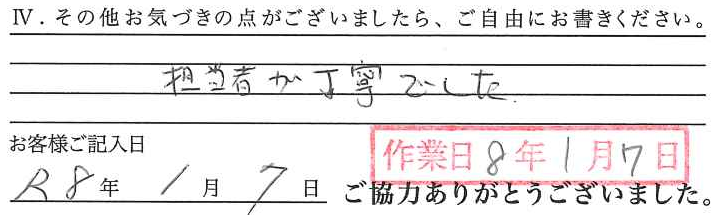 Ⅳ．その他お気づきの点がございましたら、ご自由にお書きください。
担当者が丁寧でした.
お客様ご記入日
作業日8年1月7日
R8年 1月 7日
ご協力ありがとうございました。